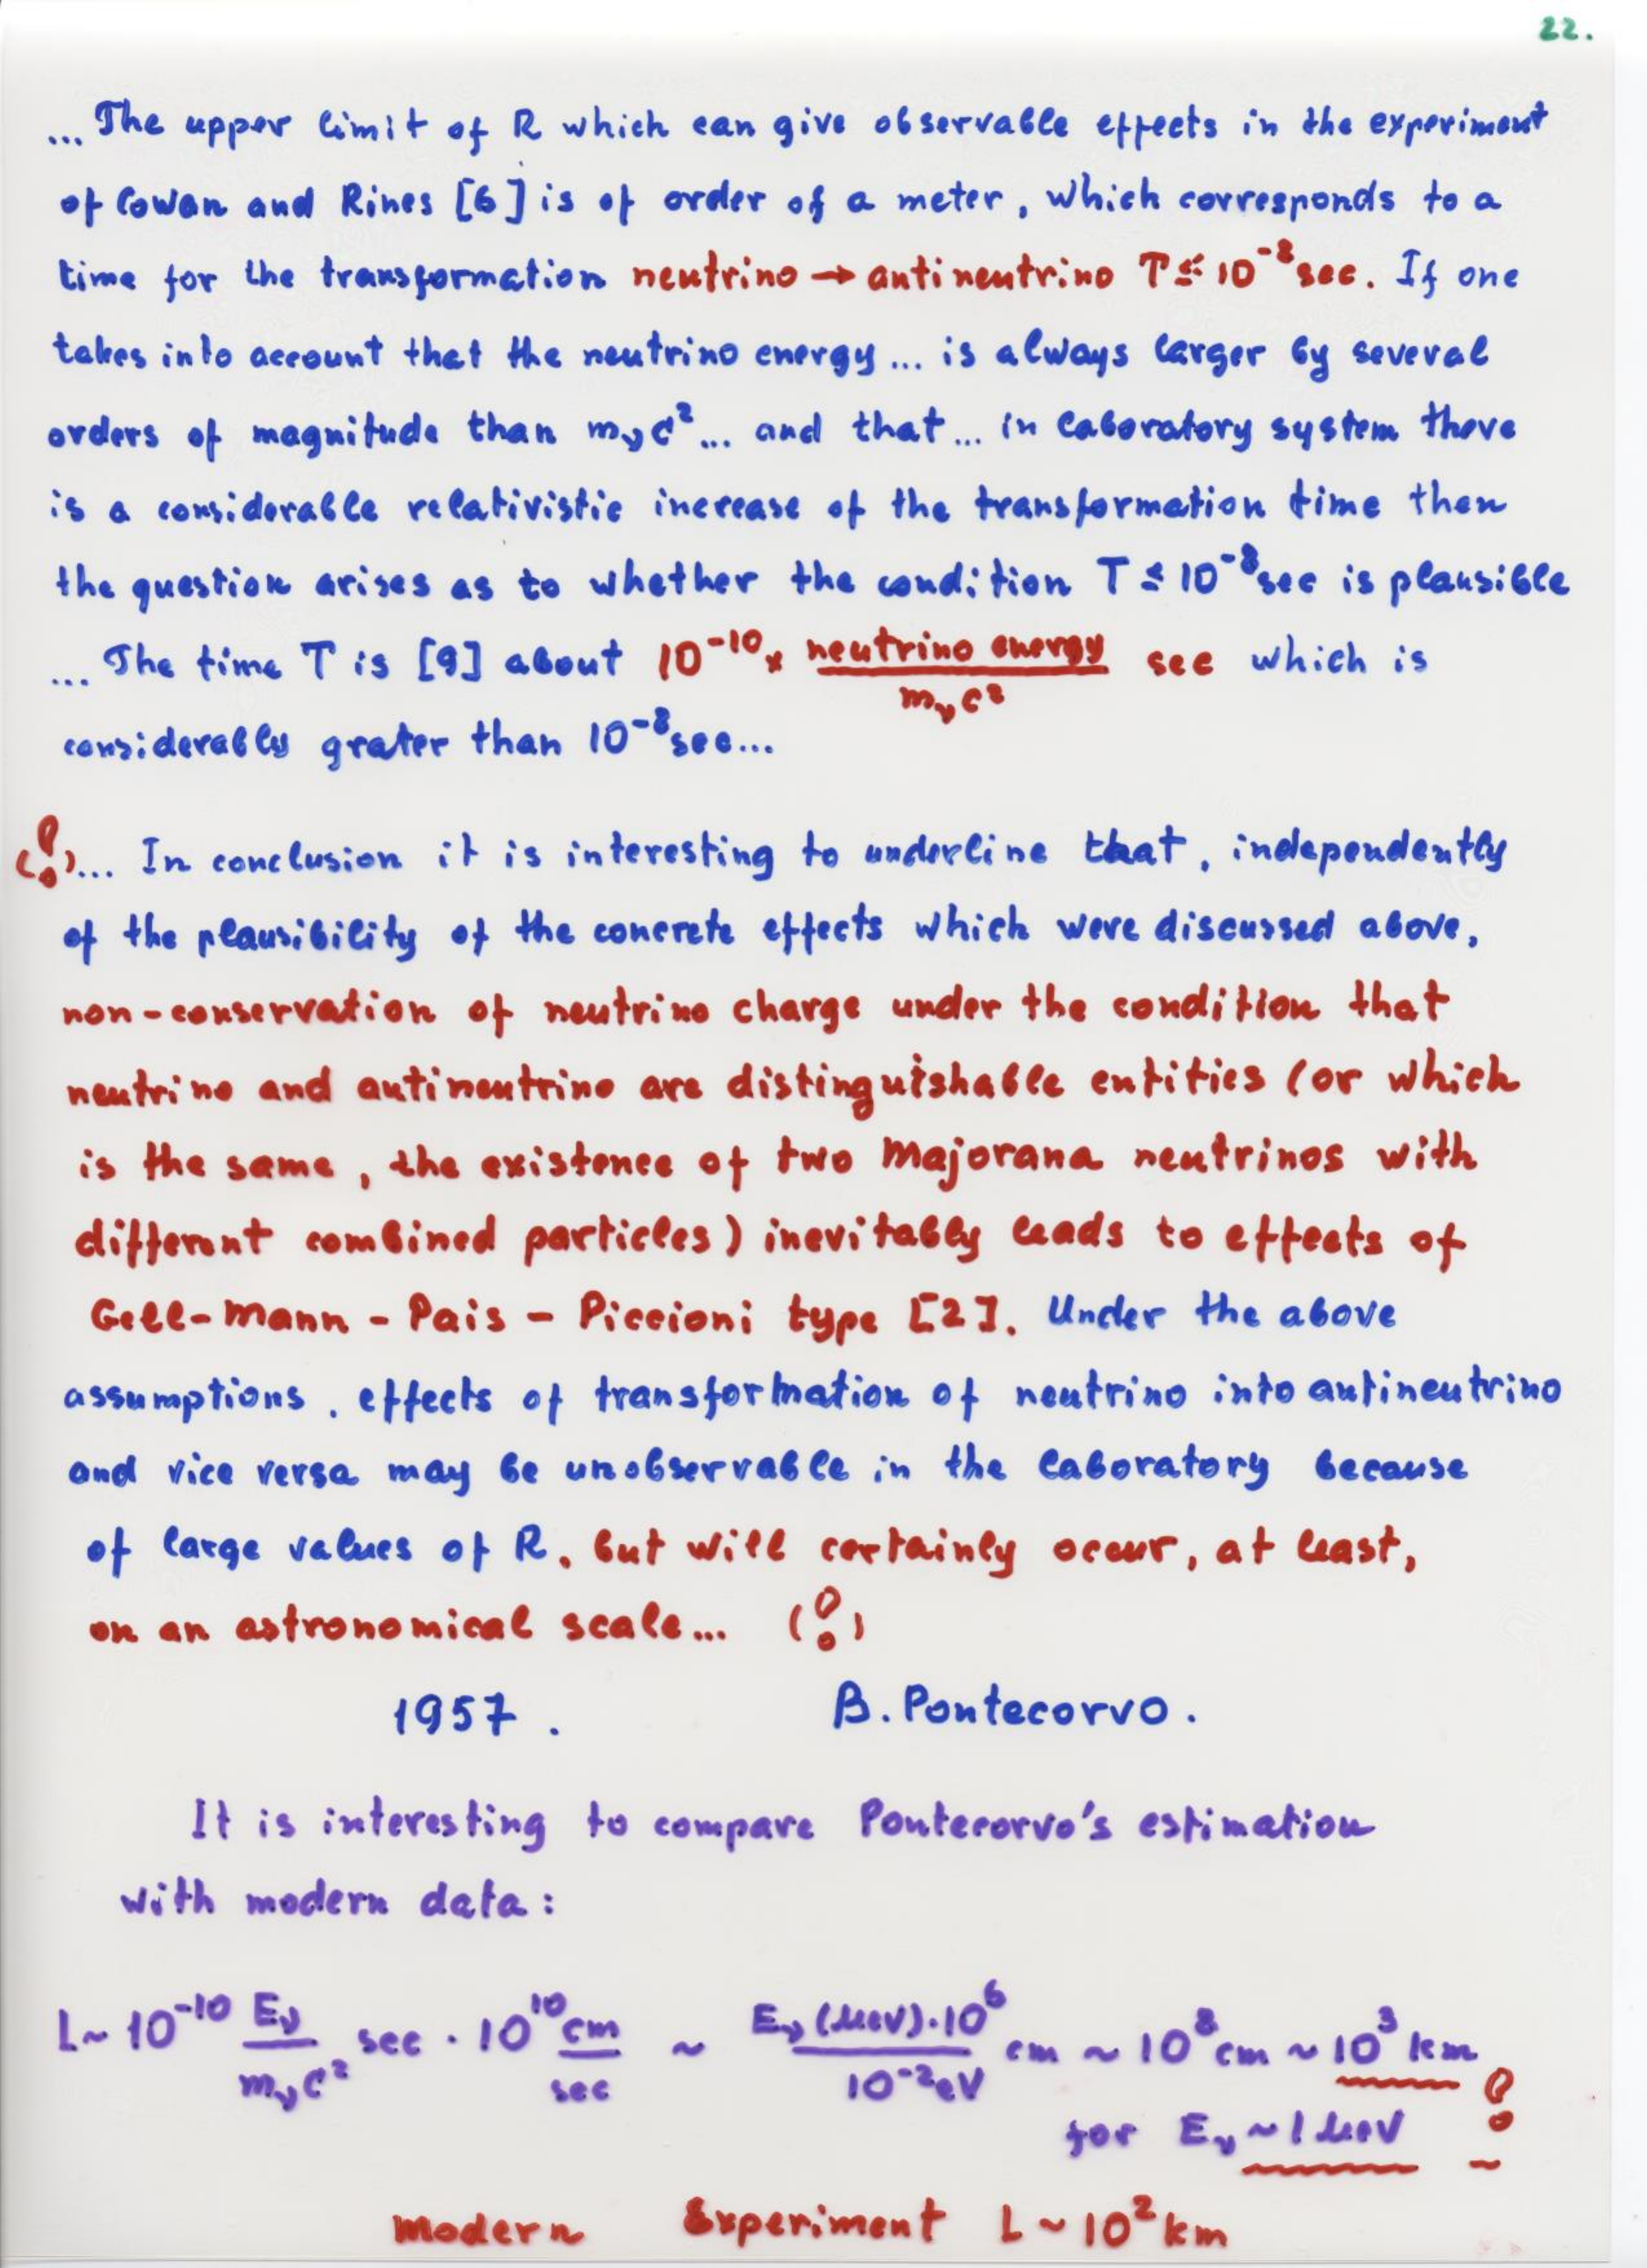 22.
... The upper limit of R which can give observable effects in the experiment
of Cowan and Rines [6] is of order of a meter, which corresponds to a
time for the transformation neutrino → antineutrino T ≤ 10⁻⁸ sec. If one
takes into account that the neutrino energy ... is always larger by several
orders of magnitude than m_νc² ... and that ... in laboratory system there
is a considerable relativistic increase of the transformation time then
the question arises as to whether the condition T ≤ 10⁻⁸ sec is plausible
... The time T is [9] about 10⁻¹⁰ × neutrino energy / m_νc² sec which is
considerably grater than 10⁻⁸ sec...
(!)... In conclusion it is interesting to underline that, independently
of the plausibility of the concrete effects which were discussed above,
non-conservation of neutrino charge under the condition that
neutrino and antineutrino are distinguishable entities (or which
is the same, the existence of two Majorana neutrinos with
different combined particles) inevitably leads to effects of
Gell-Mann - Pais - Piccioni type [2]. Under the above
assumptions, effects of transformation of neutrino into antineutrino
and vice versa may be unobservable in the laboratory because
of large values of R, but will certainly occur, at least,
on an astronomical scale... (!)
1957. B. Pontecorvo.
It is interesting to compare Pontecorvo's estimation
with modern data:
L ~ 10⁻¹⁰ E_ν / m_νc² sec · 10¹⁰ cm / sec ~ E_ν (MeV)·10⁶ / 10⁻² eV cm ~ 10⁸ cm ~ 10³ km !
for E_ν ~ 1 MeV
Modern Experiment L ~ 10² km